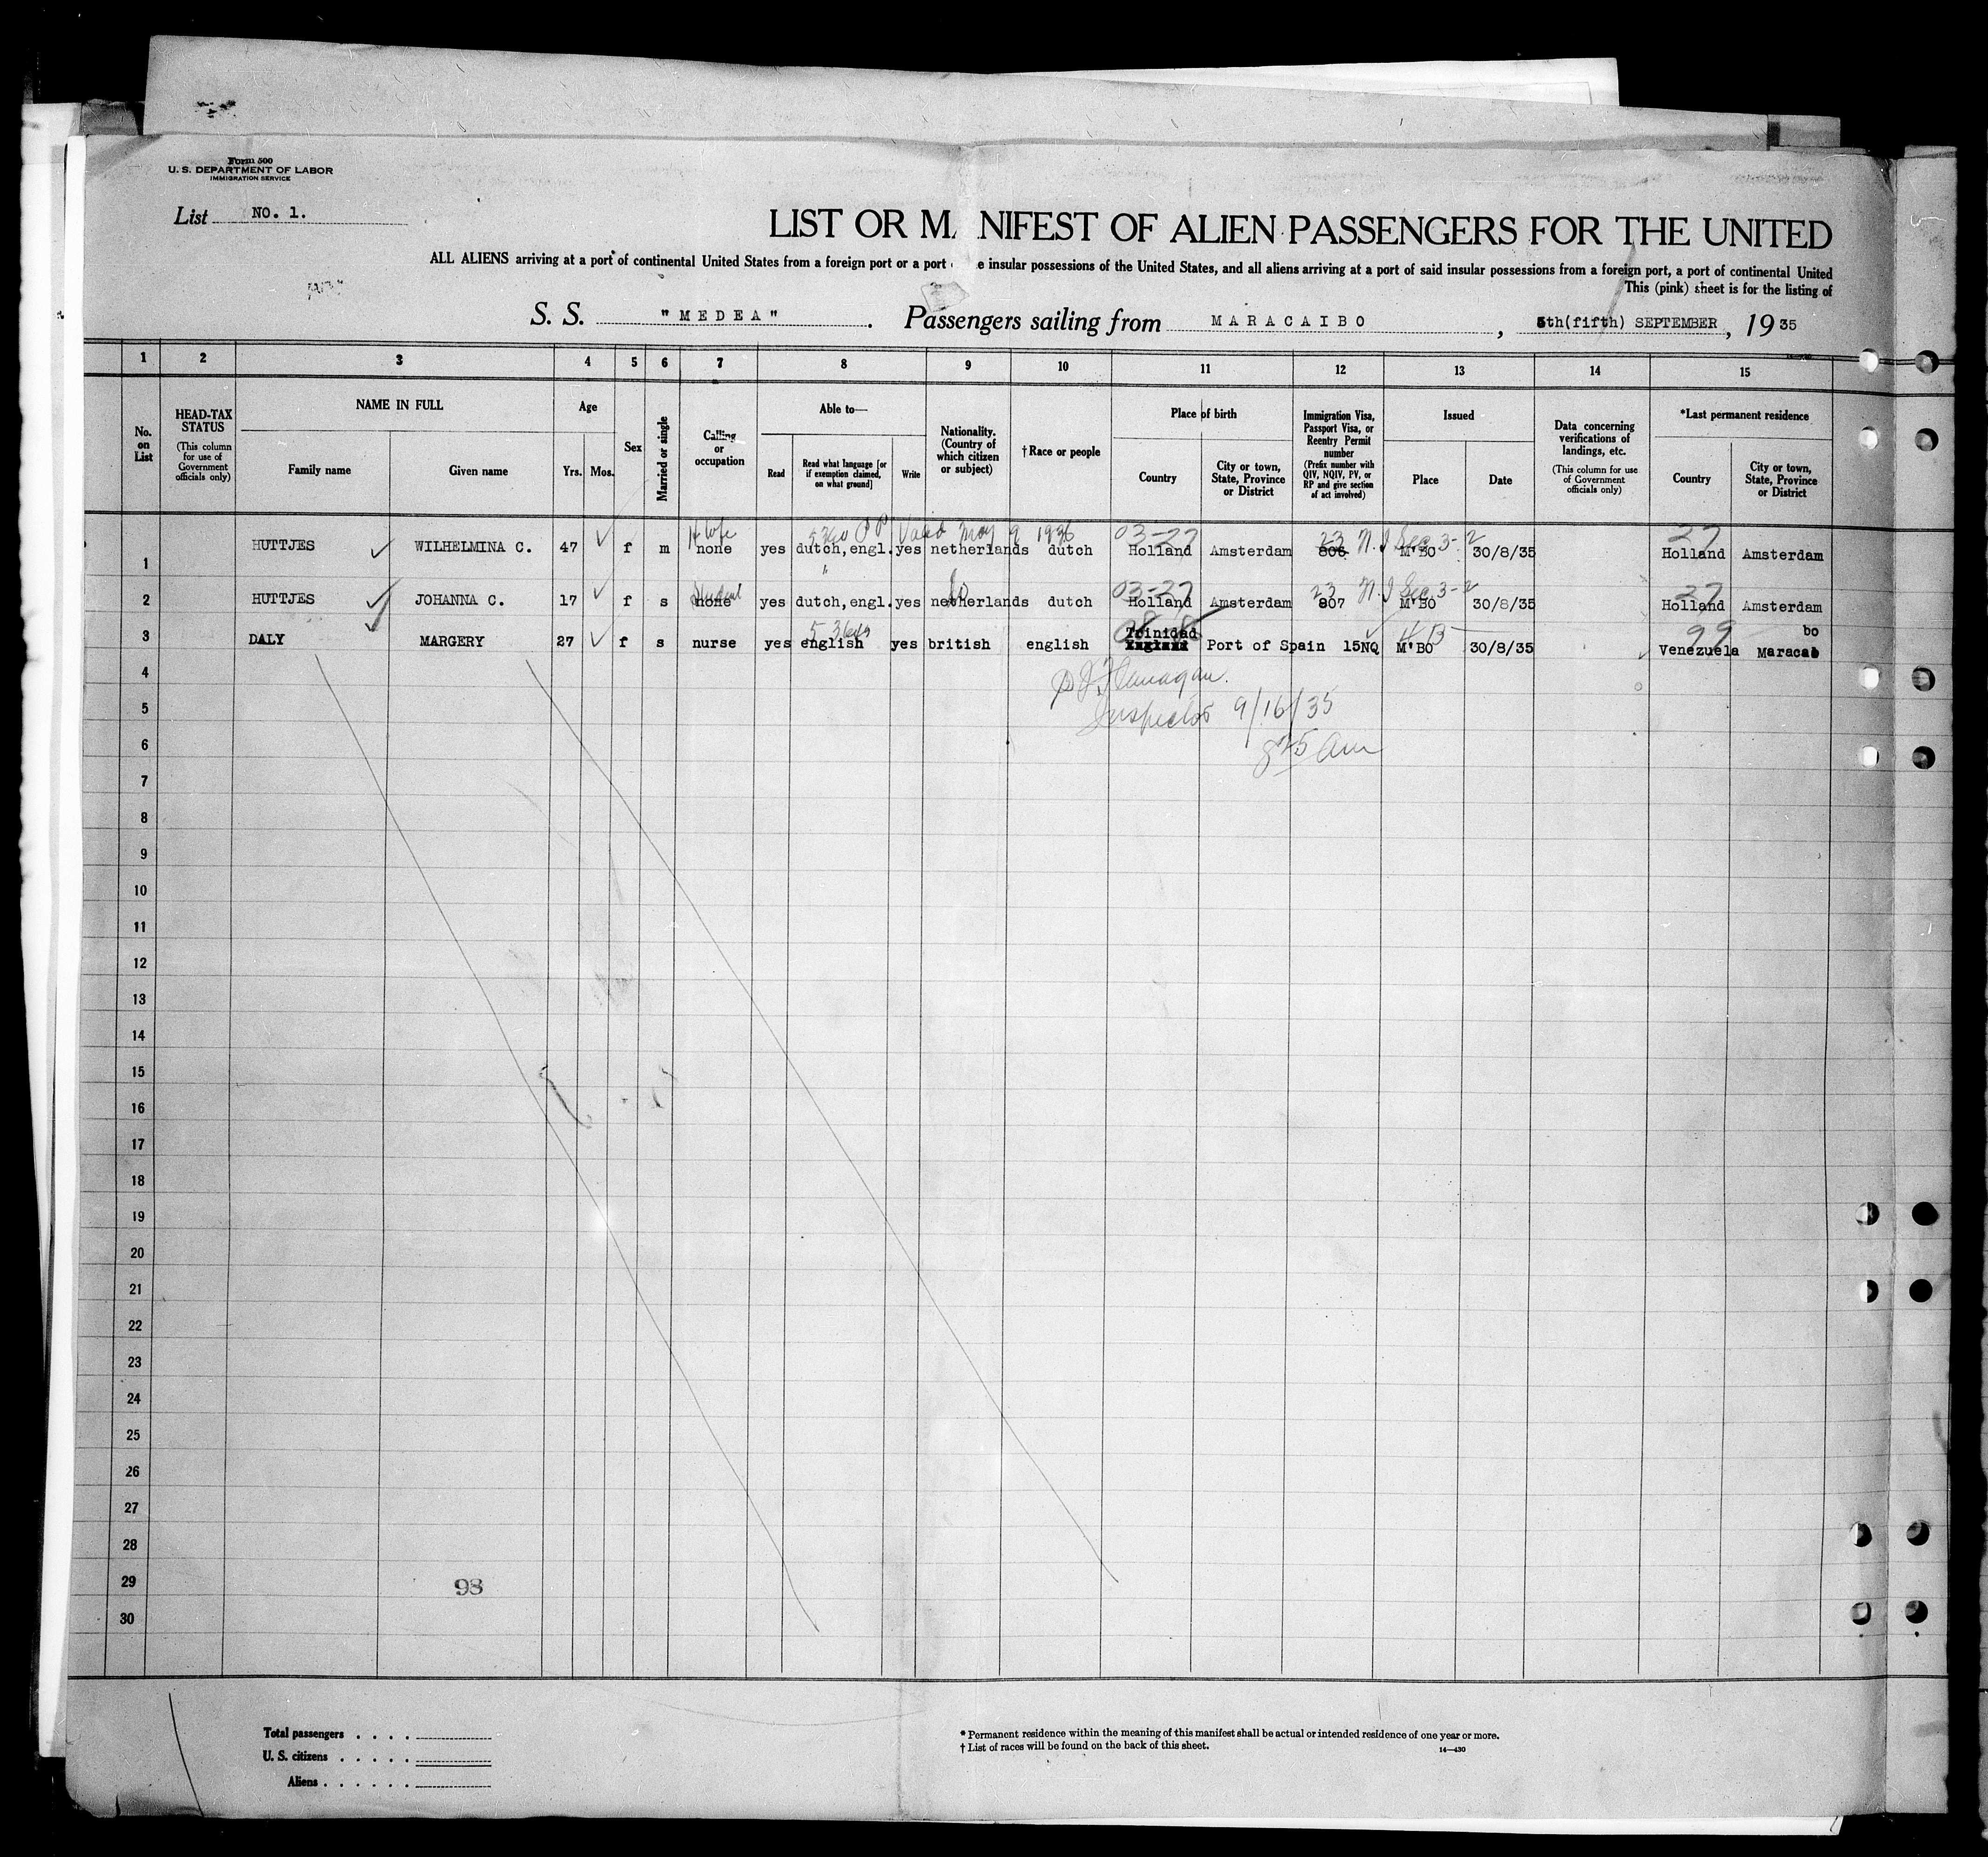 Form 500
U. S. DEPARTMENT OF LABOR
IMMIGRATION SERVICE
List NO. 1.
LIST OR MANIFEST OF ALIEN PASSENGERS FOR THE UNITED
ALL ALIENS arriving at a port of continental United States from a foreign port or a port e insular possessions of the United States, and all aliens arriving at a port of said insular possessions from a foreign port, a port of continental United
This (pink) sheet is for the listing of
S. S. "MEDEA". Passengers sailing from MARACAIBO, 5th(fifth) SEPTEMBER, 19 35
1 2 3 4 5 6 7 8 9 10 11 12 13 14 15
No. on List
HEAD-TAX STATUS (This column for use of Government officials only)
NAME IN FULL
Family name Given name
Age
Yrs. Mos.
Sex
Married or single
Calling or occupation
Able to—
Read Read what language [or if exemption claimed, on what ground] Write
Nationality. (Country of which citizen or subject)
†Race or people
Place of birth
Country City or town, State, Province or District
Immigration Visa, Passport Visa, or Reentry Permit number (Prefix number with QIV, NQIV, PV, or RP and give section of act involved)
Issued
Place Date
Data concerning verifications of landings, etc. (This column for use of Government officials only)
*Last permanent residence
Country City or town, State, Province or District
H wife PP Valid May 9 1936 03-27 23 N.I Sec. 3-2 27
1 HUTTJES WILHELMINA C. 47 f m none yes dutch,engl. yes netherlands dutch Holland Amsterdam 806 M'BO 30/8/35 Holland Amsterdam
"
Student do 03-27 23 N.I Sec 3-2 27
2 HUTTJES JOHANNA C. 17 f s none yes dutch,engl. yes netherlands dutch Holland Amsterdam 807 M'BO 30/8/35 Holland Amsterdam
Trinidad 99 bo
3 DALY MARGERY 27 f s nurse yes english yes british english England Port of Spain 15NQ M'BO 30/8/35 Venezuela Maracai
4 Flanagan.
5 Inspector 9/16/35
6 8 25 am
7
8
9
10
11
12
13
14
15
16
17
18
19
20
21
22
23
24
25
26
27
28
29 98
30
Total passengers . . . .
U. S. citizens . . . . .
Aliens . . . . . .
* Permanent residence within the meaning of this manifest shall be actual or intended residence of one year or more.
† List of races will be found on the back of this sheet.
14—430